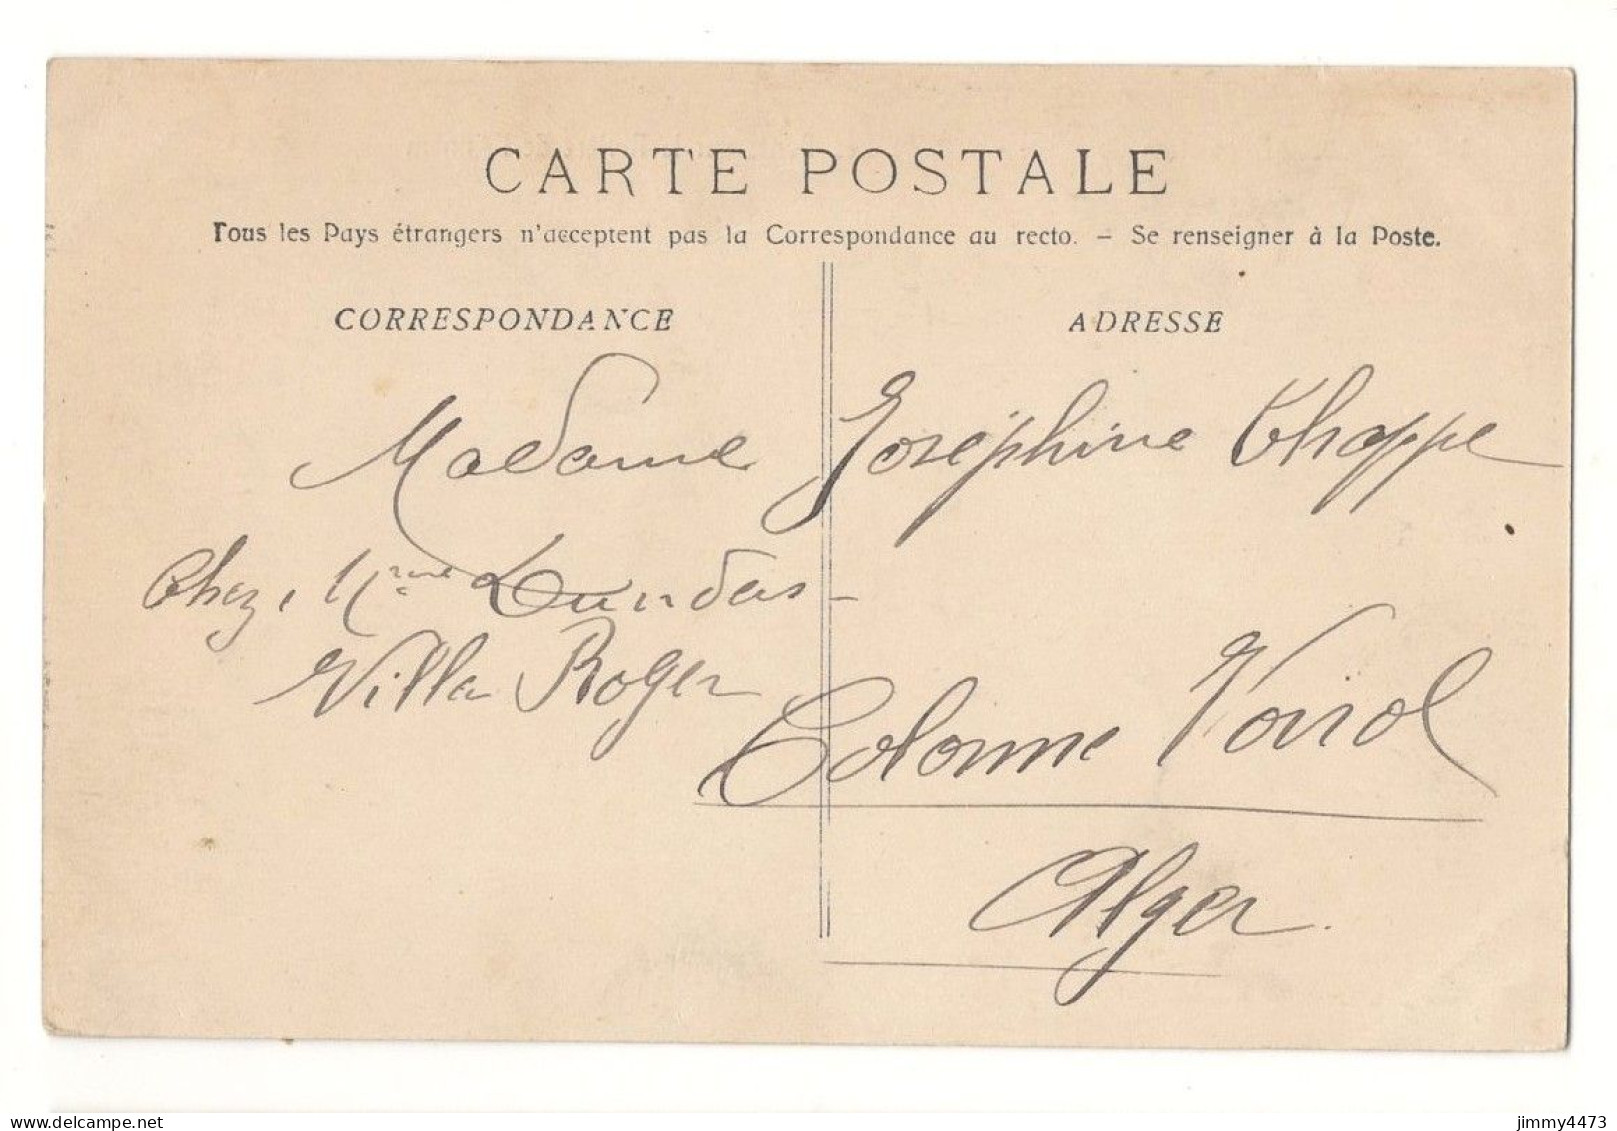 CARTE POSTALE
Tous les Pays étrangers n'acceptent pas la Correspondance au recto. – Se renseigner à la Poste.
CORRESPONDANCE
ADRESSE
Madame Joséphine Chappe
Chez, Mme Dundas –
Villa Roger
Colonne Voirol
Alger.
delcampe.net
jimmy4473